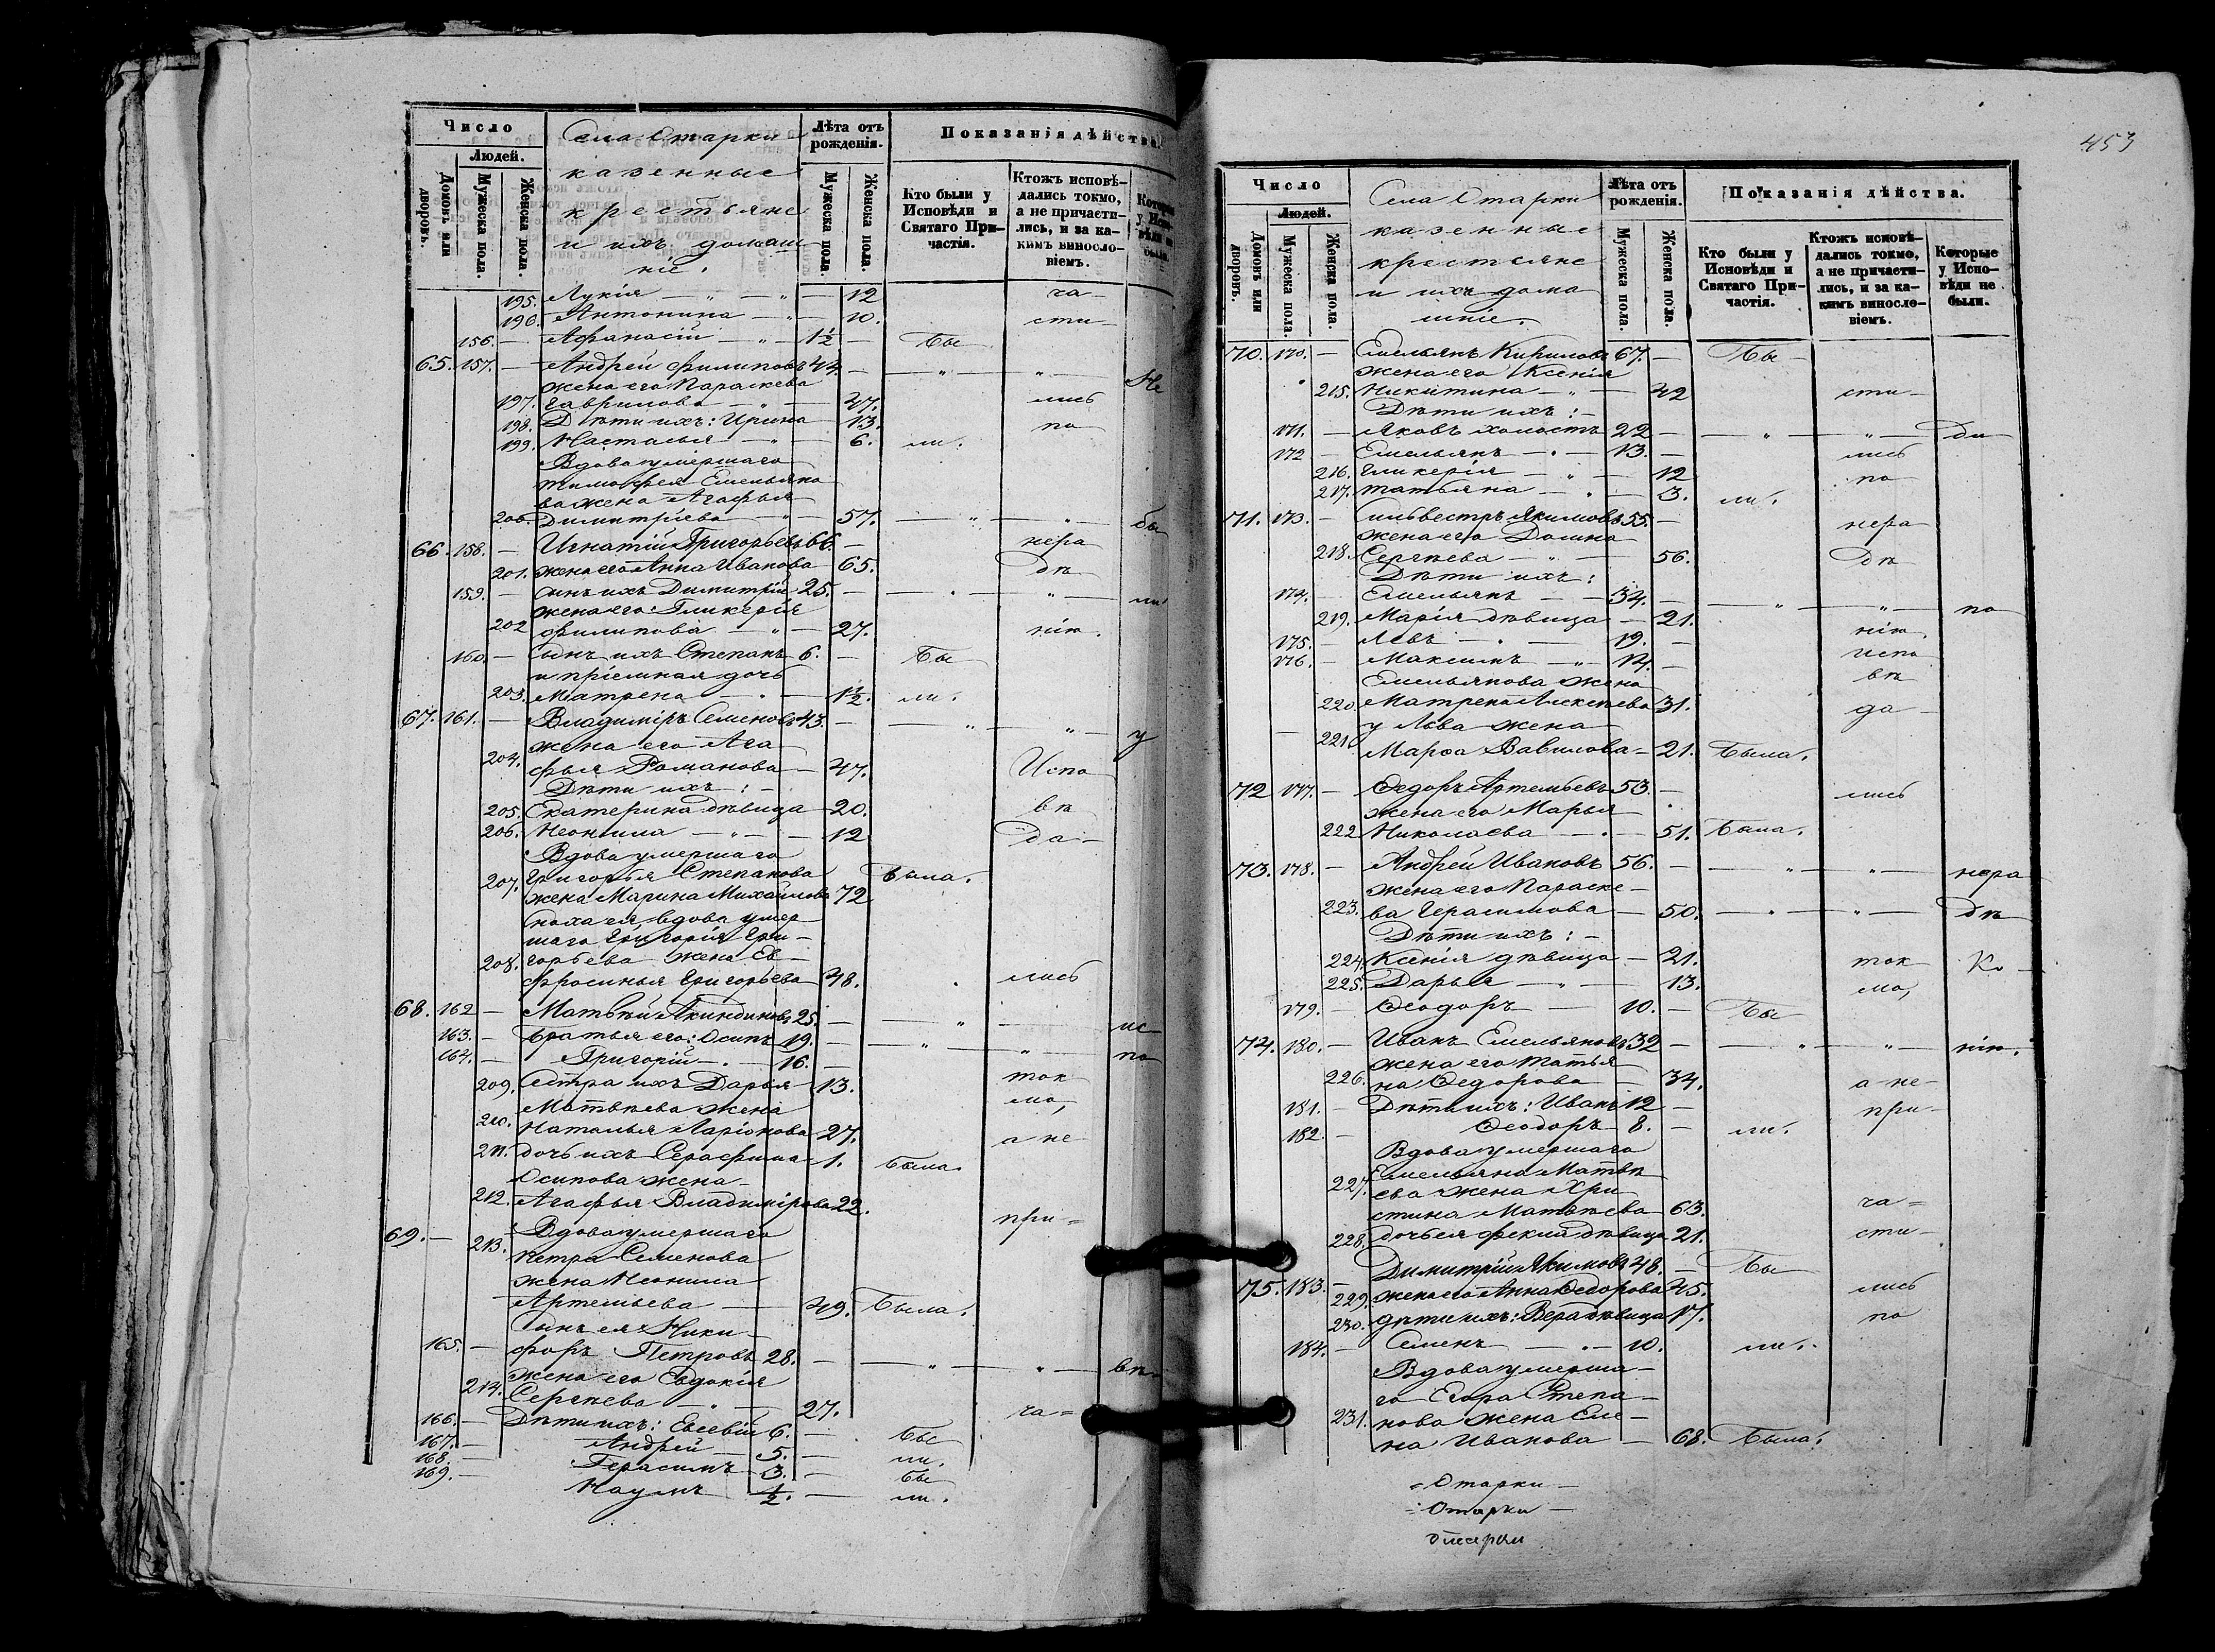 Число
Села Старки
Лѣта отъ рожденія.
Показанія дѣйства
Людей.
казенные
крестьяне
и ихъ домаш
ніе.
Домовъ или дворовъ.
Мужеска пола.
Женска пола.
Мужеска пола.
Женска пола.
Кто были у Исповѣди и Святаго Причастія.
Ктожъ исповѣдались токмо, а не причастились, и за какимъ винословіемъ.
195. Лукія — " — 12 ча-
196. Антонина — " — 10. сти-
156. — Афанасій — " — 1½ — Бы
65. 157. — Андрей Филиповъ 44. — " — " — Не
жена его Параскева
197. Гаврилова — " — 47. лись
198. Дѣти ихъ: Ирина — 13. по
199. Настасья — " — 6. ли.
Вдова умершаго
Тимофея Емельяно
ва жена Агафья
200. Димитріева — " — 57. — " — " — бы
66. 158. — Игнатій Григорьевъ 66. — нера
201. жена его Анна Иванова 65. дѣ
159. — сынъ ихъ Димитрій 25. — " — " — ли
жена его: Гликерія
202 Филипова — " — 27. нію.
160. — сынъ ихъ Степанъ 6. — Бы
и пріемная дочь
203. Матрена — " — 1½. ли.
67. 161. — Владиміръ Семеновъ 43. — " — " — у
жена его Ага
204. фья Романова — 47. Испо
Дѣти ихъ: -
205. Екатерина дѣвица — 20. вѣ
206. Неонила — " — 12 Да-
Вдова умершаго
207. Григорья Степанова Была.
жена Марина Михаилова 72
сноха ея, вдова умер-
шаго Григорія Гри-
208. горьева жена Ев-
фросинья Григорьева 48. лись
68. 162 — Матвѣй Акиндиновъ 25. — " — ис
163. — братья его: Осипъ 19. — " — " — по
164. — Григорій — " — 16. —
209. Сестра ихъ Дарья — 13. ток
Матвѣева жена мо,
210. Наталья Ларіонова — 27. а не
211. дочь ихъ Серафима — 1. была.
Осипова жена
212. Агафья Владимірова 22. при=
69. — 213. Вдова умершаго
Петра Семенова
жена Неонила
Артемьева — 49. Была.
Сынъ ея Ники-
165. — форъ Петровъ 28. — " — " — вѣ
жена его Евдокія
214. Сергѣева — " — 27. ча=
166. — Дѣти ихъ: Евсевій 6. — бы
167. — Андрей — 5. — ли.
168. — Герасимъ — 3. — бы
169. — Наумъ ½. — ли.
453
Число
Села Старки
Лѣта отъ рожденія.
Показанія дѣйства.
Людей.
казенные
крестьяне
и ихъ дома
шніе.
Домовъ или дворовъ.
Мужеска пола.
Женска пола.
Мужеска пола.
Женска пола.
Кто были у Исповѣди и Святаго Причастія.
Ктожъ исповѣдались токмо, а не причастились, и за какимъ винословіемъ.
Которые у Исповѣди не были.
70. 170. — Емельянъ Кириловъ 67. — Бы-
жена его Ксенія
215. Никитина — " — 42 сти-
Дѣти ихъ: -
171. — Яковъ холостъ 22 — " — " — Ди
172 — Емельянъ — " — 13. — лись
216. Гликерія — " — 12 по
217. Татьяна — " — 3. ли.
71. 173. — Сильвестръ Якимовъ 55. — нера
жена его Домна
218. Сергѣева — " — 56. Дѣ
Дѣти ихъ:
174. — Емельянъ — — 34. — " — " — по
219. Марія дѣвица — 21. нію.
175. — Левъ — " — 19. — испо
176. — Максимъ — " — 14. — вѣ
Емельянова жена
220. Матрена Алексѣева 31. да-
у Льва жена
221. Марфа Вавилова — 21. Была.
72 177. — Ѳедоръ Артемьевъ 53. — лись
жена его Марья
222 Николаева — " — 51. Была.
73. 178. — Андрей Ивановъ 56. — " — " — нера
жена его Параске-
223. ва Герасимова — 50. — " — " — дѣ
Дѣти ихъ: -
224. Ксенія дѣвица — 21. ток Ко-
225. Дарья — " — 13. мо,
179. — Ѳеодоръ — 10. — Бы
74. 180. — Иванъ Емельяновъ 32 — " — " — нію.
жена его Татья
226. на Ѳедорова — 34. а не-
181. — Дѣти ихъ: Иванъ 12 — при-
182. — Ѳеодоръ 8. — ли.
Вдова умершаго
Емельяна Матвѣ
227. ева жена Хри
стина Матвѣева — 63. ча=
228. дочь ея Фекла дѣвица 21. сти-
75. 183. — Димитрій Якимовъ 48. — Бы
229. жена его Анна Ѳедорова 45. лись
230. дѣти ихъ: Вера дѣвица 17. по
184. — Семенъ — " — 10. ли.
Вдова умерша-
го Егора Степа-
231. нова жена Еле-
на Иванова — 68. Была.
= Старки —
= Старки —